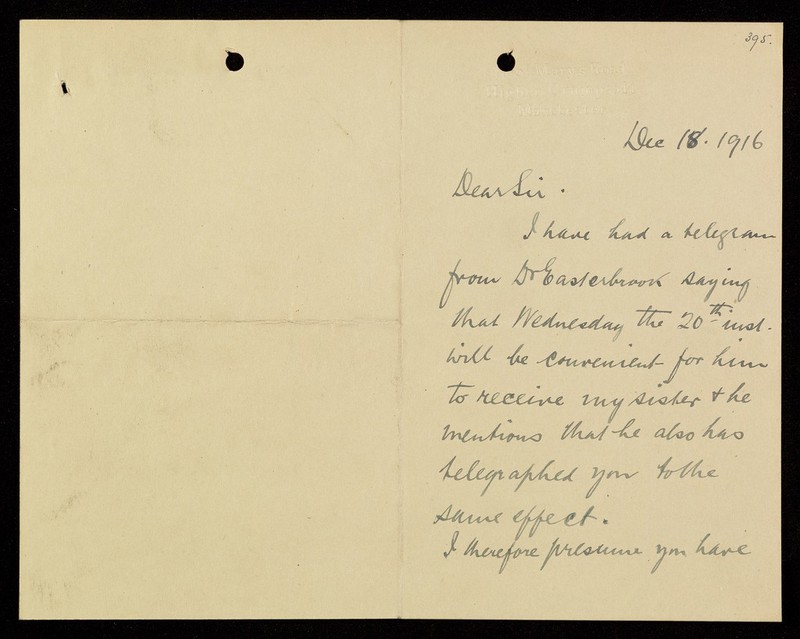 395.
Dec 18. 1916
Dear Sir.
I have had a telegram
from Dr Easterbrook saying
that Wednesday the 20th inst.
will be convenient for him
to receive my sister & he
mentions that he also has
telegraphed you to the
same effect.
I therefore presume you have